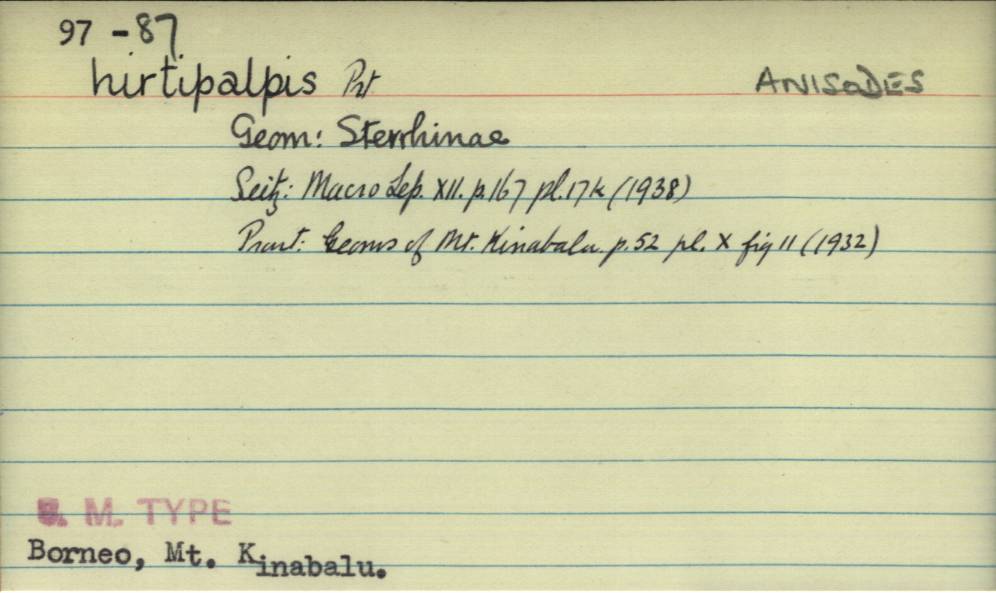 97 -87
hirtipalpis Prt ANISODES
Geom: Sterrhinae
Seitz: Macro Lep. XII. p.167 pl.17k (1938)
Prout: Geoms of Mt. Kinabalu. p.52 pl. X fig 11 (1932)
B. M. TYPE
Borneo, Mt. Kinabalu.